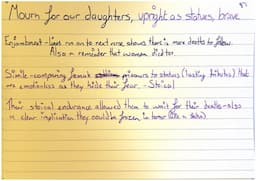 Mourn for our daughters, upright as statues, brave
Enjambment - lines run on to next verse shows there is more deaths to follow.
Also a reminder that women died too
Simile - comparing female prisoners to statues (lasting tributes) that
are emotionless as they hide their fear - Stoical
Their stoical endurance allowed them to wait for their deaths - also
a clear implication they couldn't be frozen in terror (like a statue)